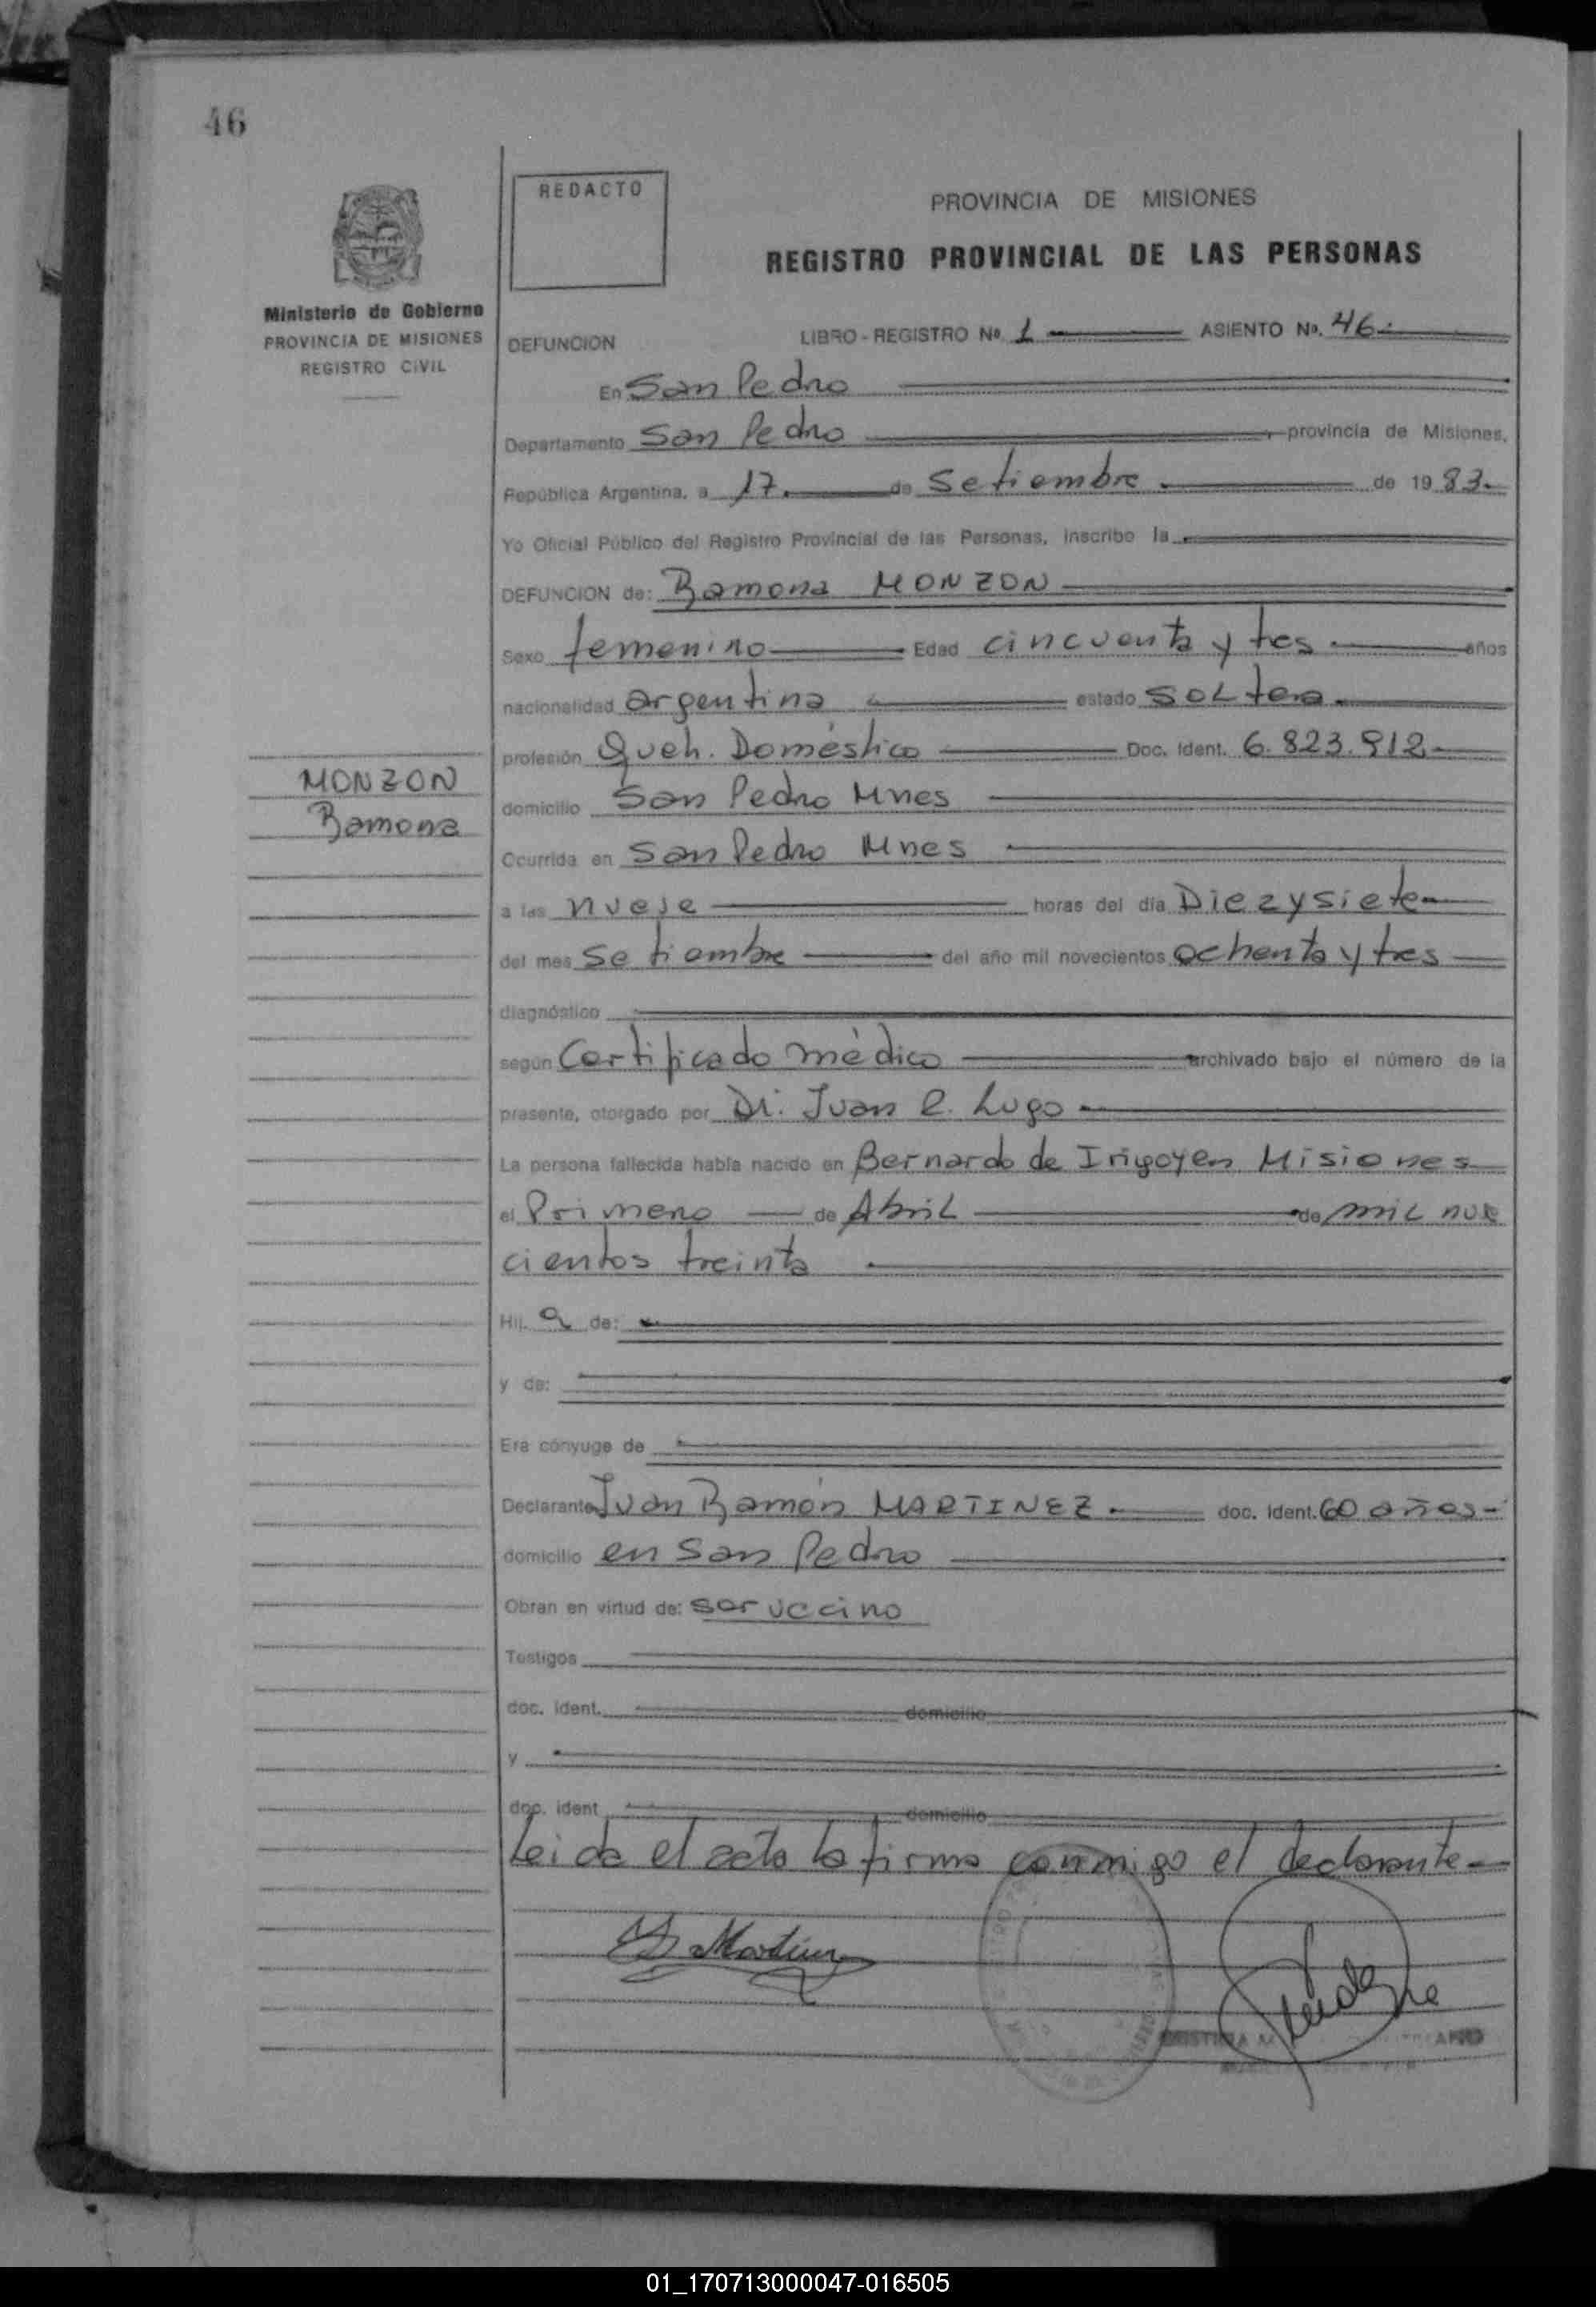 46
REDACTO
PROVINCIA DE MISIONES
REGISTRO PROVINCIAL DE LAS PERSONAS
Ministerio de Gobierno
PROVINCIA DE MISIONES
REGISTRO CIVIL
DEFUNCION LIBRO - REGISTRO No. 1 ASIENTO No. 46
En San Pedro
Departamento San Pedro provincia de Misiones,
República Argentina, a 17 de Setiembre de 19 83
Yo Oficial Público del Registro Provincial de las Personas, inscribo la
DEFUNCION de: Ramona MONZON
Sexo femenino Edad cincuenta y tres años
nacionalidad argentina estado soltera
profesión Queh. Doméstico Doc. Ident. 6.823.912
MONZON
Ramona
domicilio San Pedro Mnes
Ocurrida en San Pedro Mnes
a las nueve horas del día Diezysiete
del mes Setiembre del año mil novecientos ochenta y tres
diagnóstico
según Certificado médico archivado bajo el número de la
presente, otorgado por Dr. Juan R. Lugo
La persona fallecida había nacido en Bernardo de Irigoyen Misiones
el Primero de Abril de mil nue
cientos treinta
Hij a de:
y de:
Era cónyuge de
Declarante Juan Ramón MARTINEZ doc. ident. 60 años
domicilio en San Pedro
Obran en virtud de: ser vecino
Testigos
doc. ident. domicilio
y
doc. ident domicilio
Leida el acta la firma conmigo el declarante
Martinez